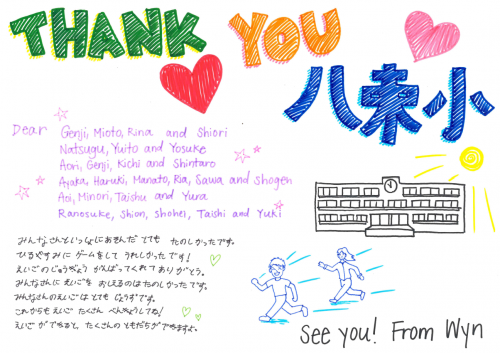 THANK YOU
八束小
Dear Genji, Mioto, Rina and Shiori
Natsugu, Yuito and Yosuke
Aori, Genji, Kichi and Shintaro
Ayaka, Haruki, Manato, Ria, Sawa and Shogen
Aoi, Minori, Taishu and Yura
Ranosuke, Shion, Shohei, Taishi and Yuki
みんなさんといっしょにあそんだ とても たのしかったです。
ひるやすみに ゲームをして うれしかったです!
えいごのじゅぎょう がんばってくれて ありがとう。
みんなさんに えいごを おしえるのは たのしかったです。
みんなさんのえいごは とても じょうずです。
これからも えいご たくさん べんきょうしてね!
えいご が できると、たくさんの ともだちが できますよ。
See you! From Wyn